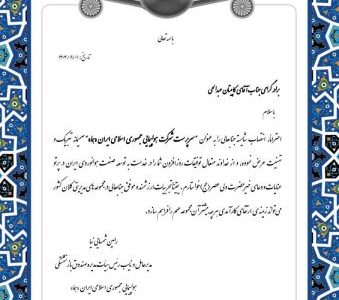 باسمه تعالی
تاریخ: ۱۴۰۳/۰۶/۱۱
برادر گرامی جناب آقای کاپیتان عبدالهی
با سلام
احتراماً، انتصاب شایسته جنابعالی را به عنوان "سرپرست شرکت هواپیمایی جمهوری اسلامی ایران (هما)" صمیمانه تبریک و
تهنیت عرض نموده و از خداوند متعال توفیقات روزافزون شما در خدمت به توسعه صنعت هوانوردی ایران در پرتو
عنایات و دعای خیر حضرت ولی عصر(عج) خواستارم. یقیناً تجربیات ارزشمند و موفق جنابعالی در مجموعه‌های مدیریتی کلان کشور
می‌تواند زمینه‌ی ارتقای کارآمدی هر چه بیشتر آن مجموعه مهم را فراهم سازد.
رامین شهبایی نیا
مدیرعامل و نایب رئیس هیات مدیره صندوق بازنشستگی
هواپیمایی جمهوری اسلامی ایران (هما)